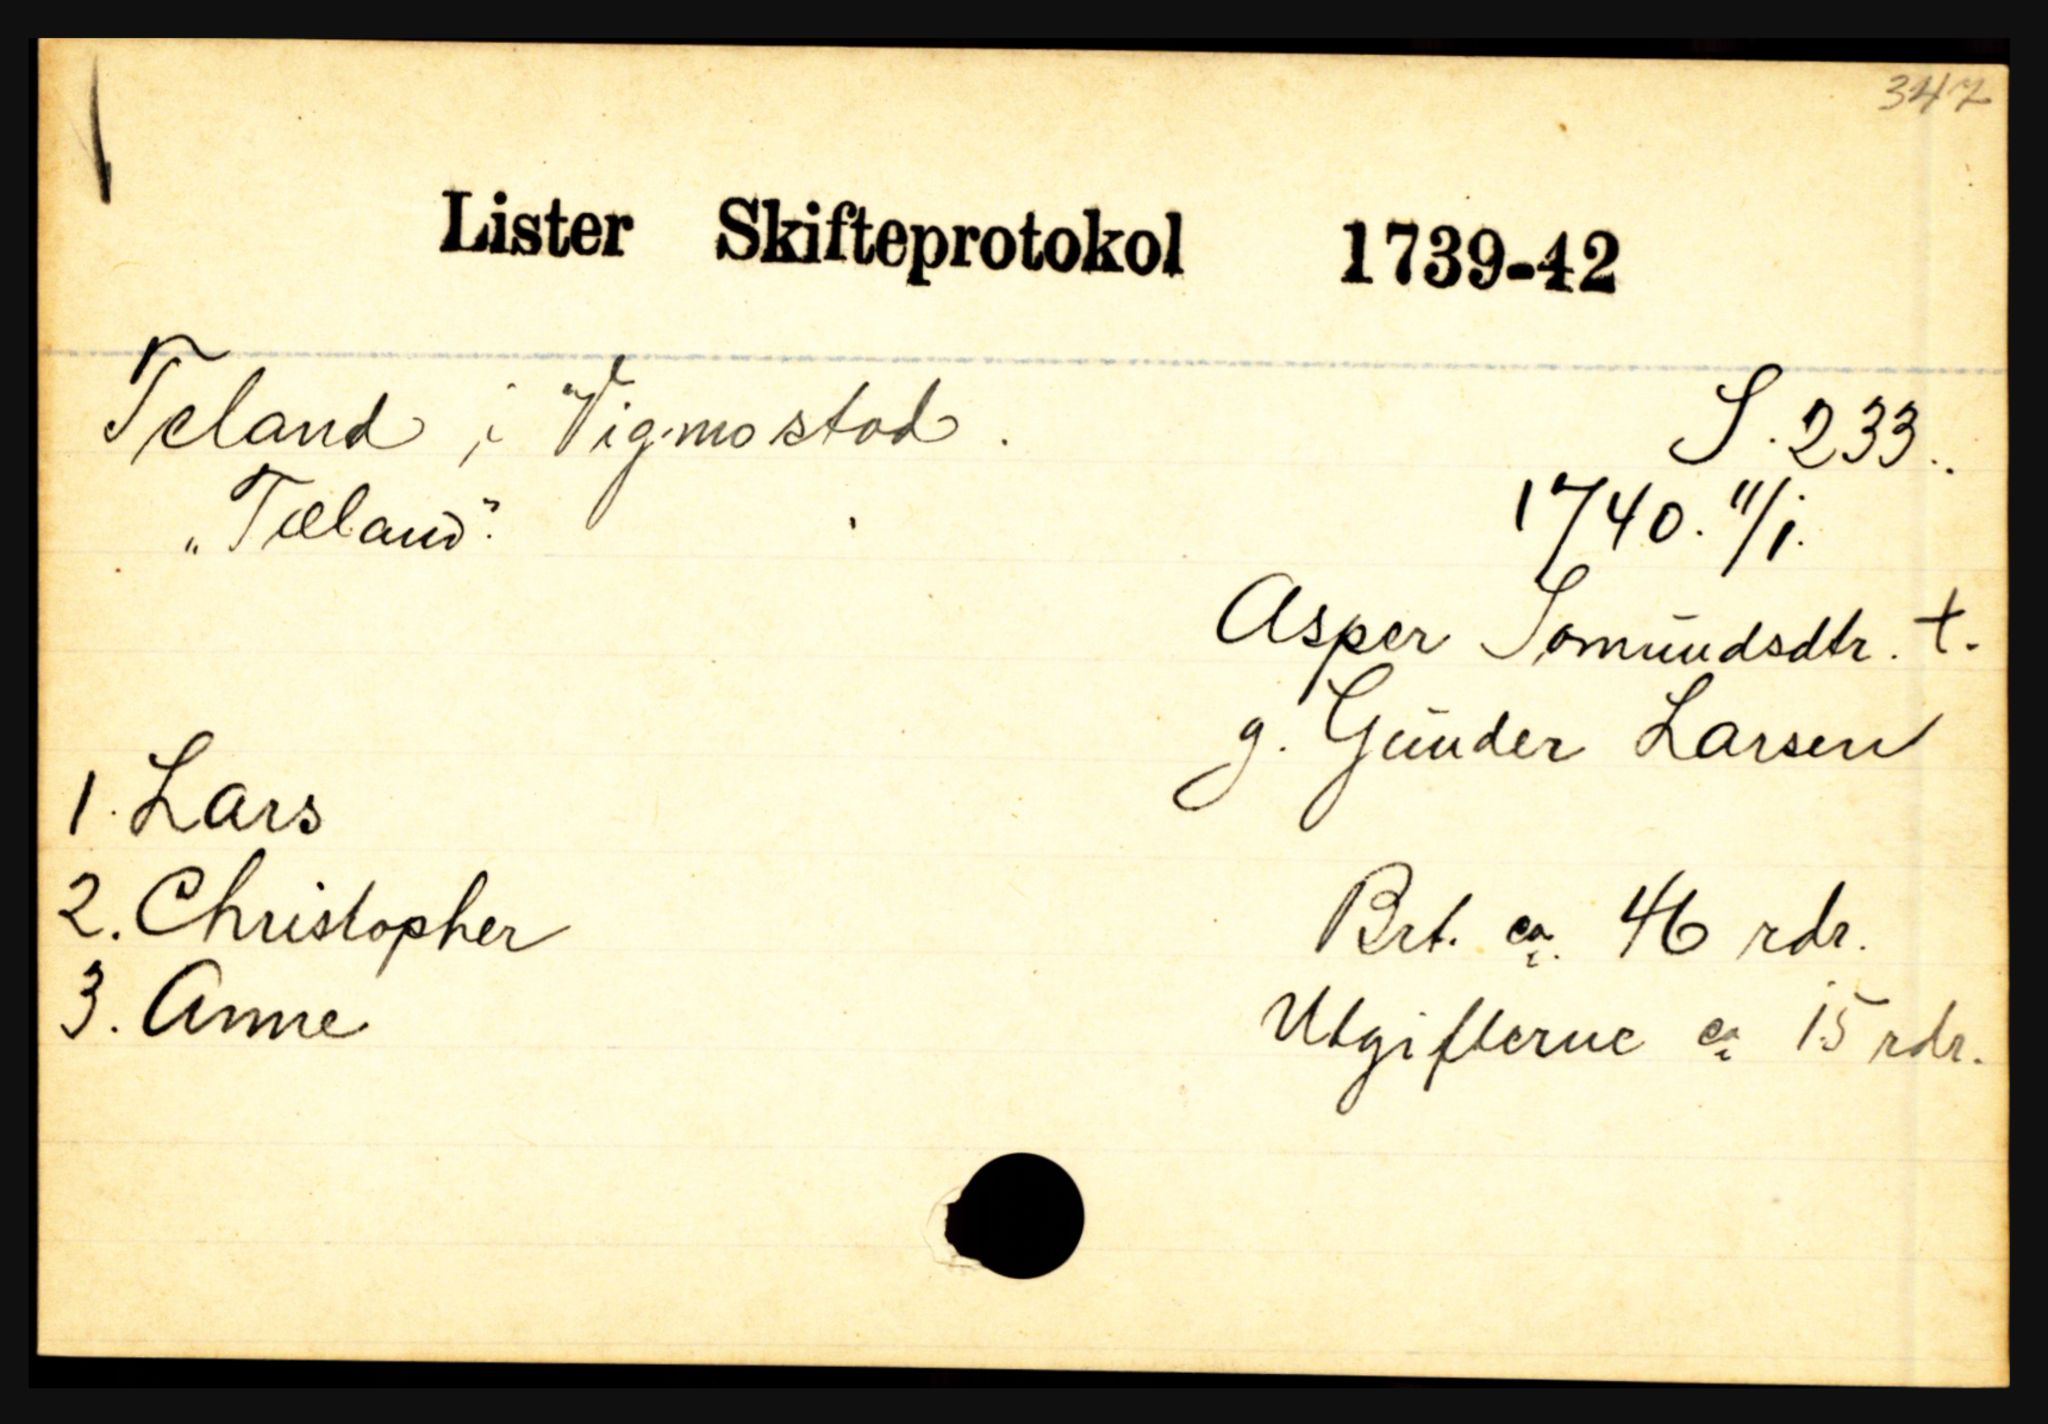 347
Lister Skifteprotokol 1739-42
Teland i Vigmostad.
S. 233.
"Tæland".
1740. 11/1.
Asper Somundsdtr. †.
g. Gunder Larsen
1. Lars
2. Christopher
3. Anne
Brt. ca. 46 rdr.
Utgifterne ca 15 rdr.